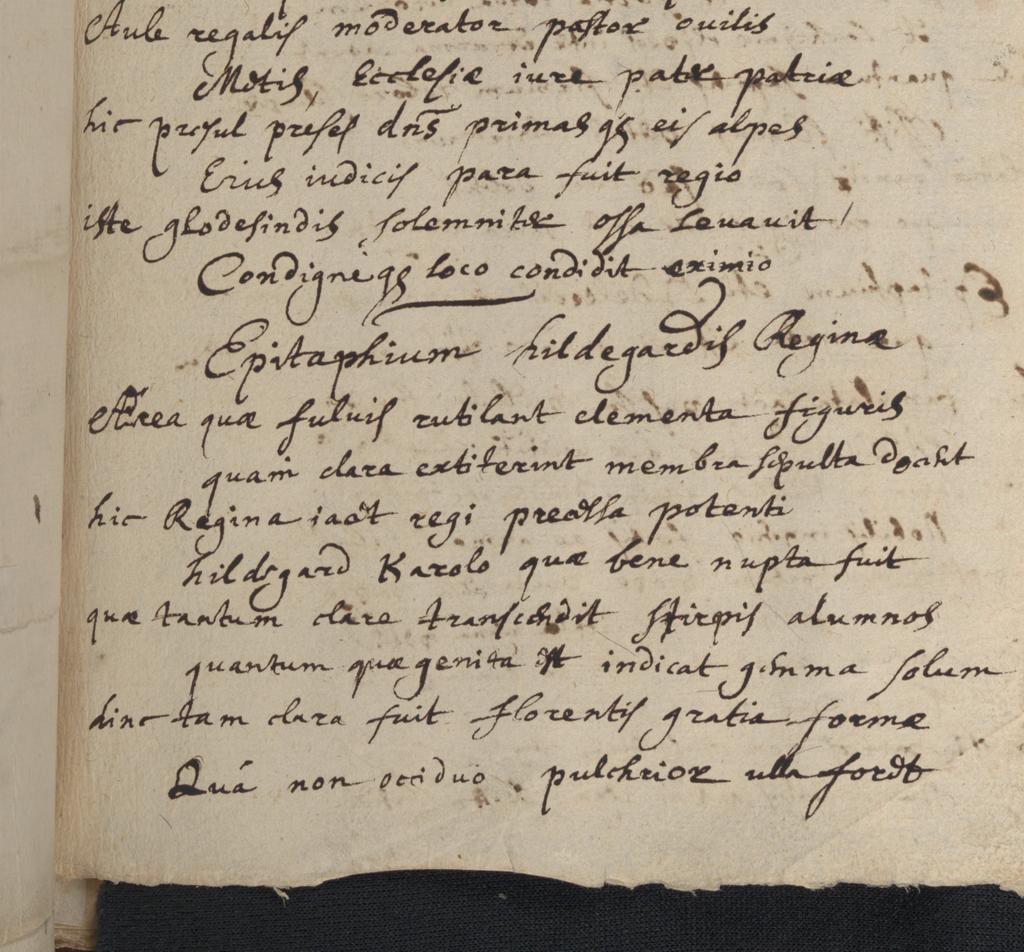 Aule regalis moderator pastor ovilis
Metis, Ecclesiæ iure pater patriæ
hic presul preses dns primas qȝ cis alpes
Eius iudiciis para fuit regio
iste glodesindis solemniter ossa levavit /
Condignè qȝ loco condidit eximio
Epitaphium hildegardis Reginæ
Aurea quæ fulvis rutilant elementa figuris
quam clara extiterint membra sepulta docent
hic Regina iacet regi precelsa potenti
hildegard Karolo quæ bene nupta fuit
quæ tantum clare transcendit stirpis alumnos
quantum quæ genita est indicat gemma solum
hinc tam clara fuit florentis gratia formæ
Quá non occiduo pulchrior ulla foret